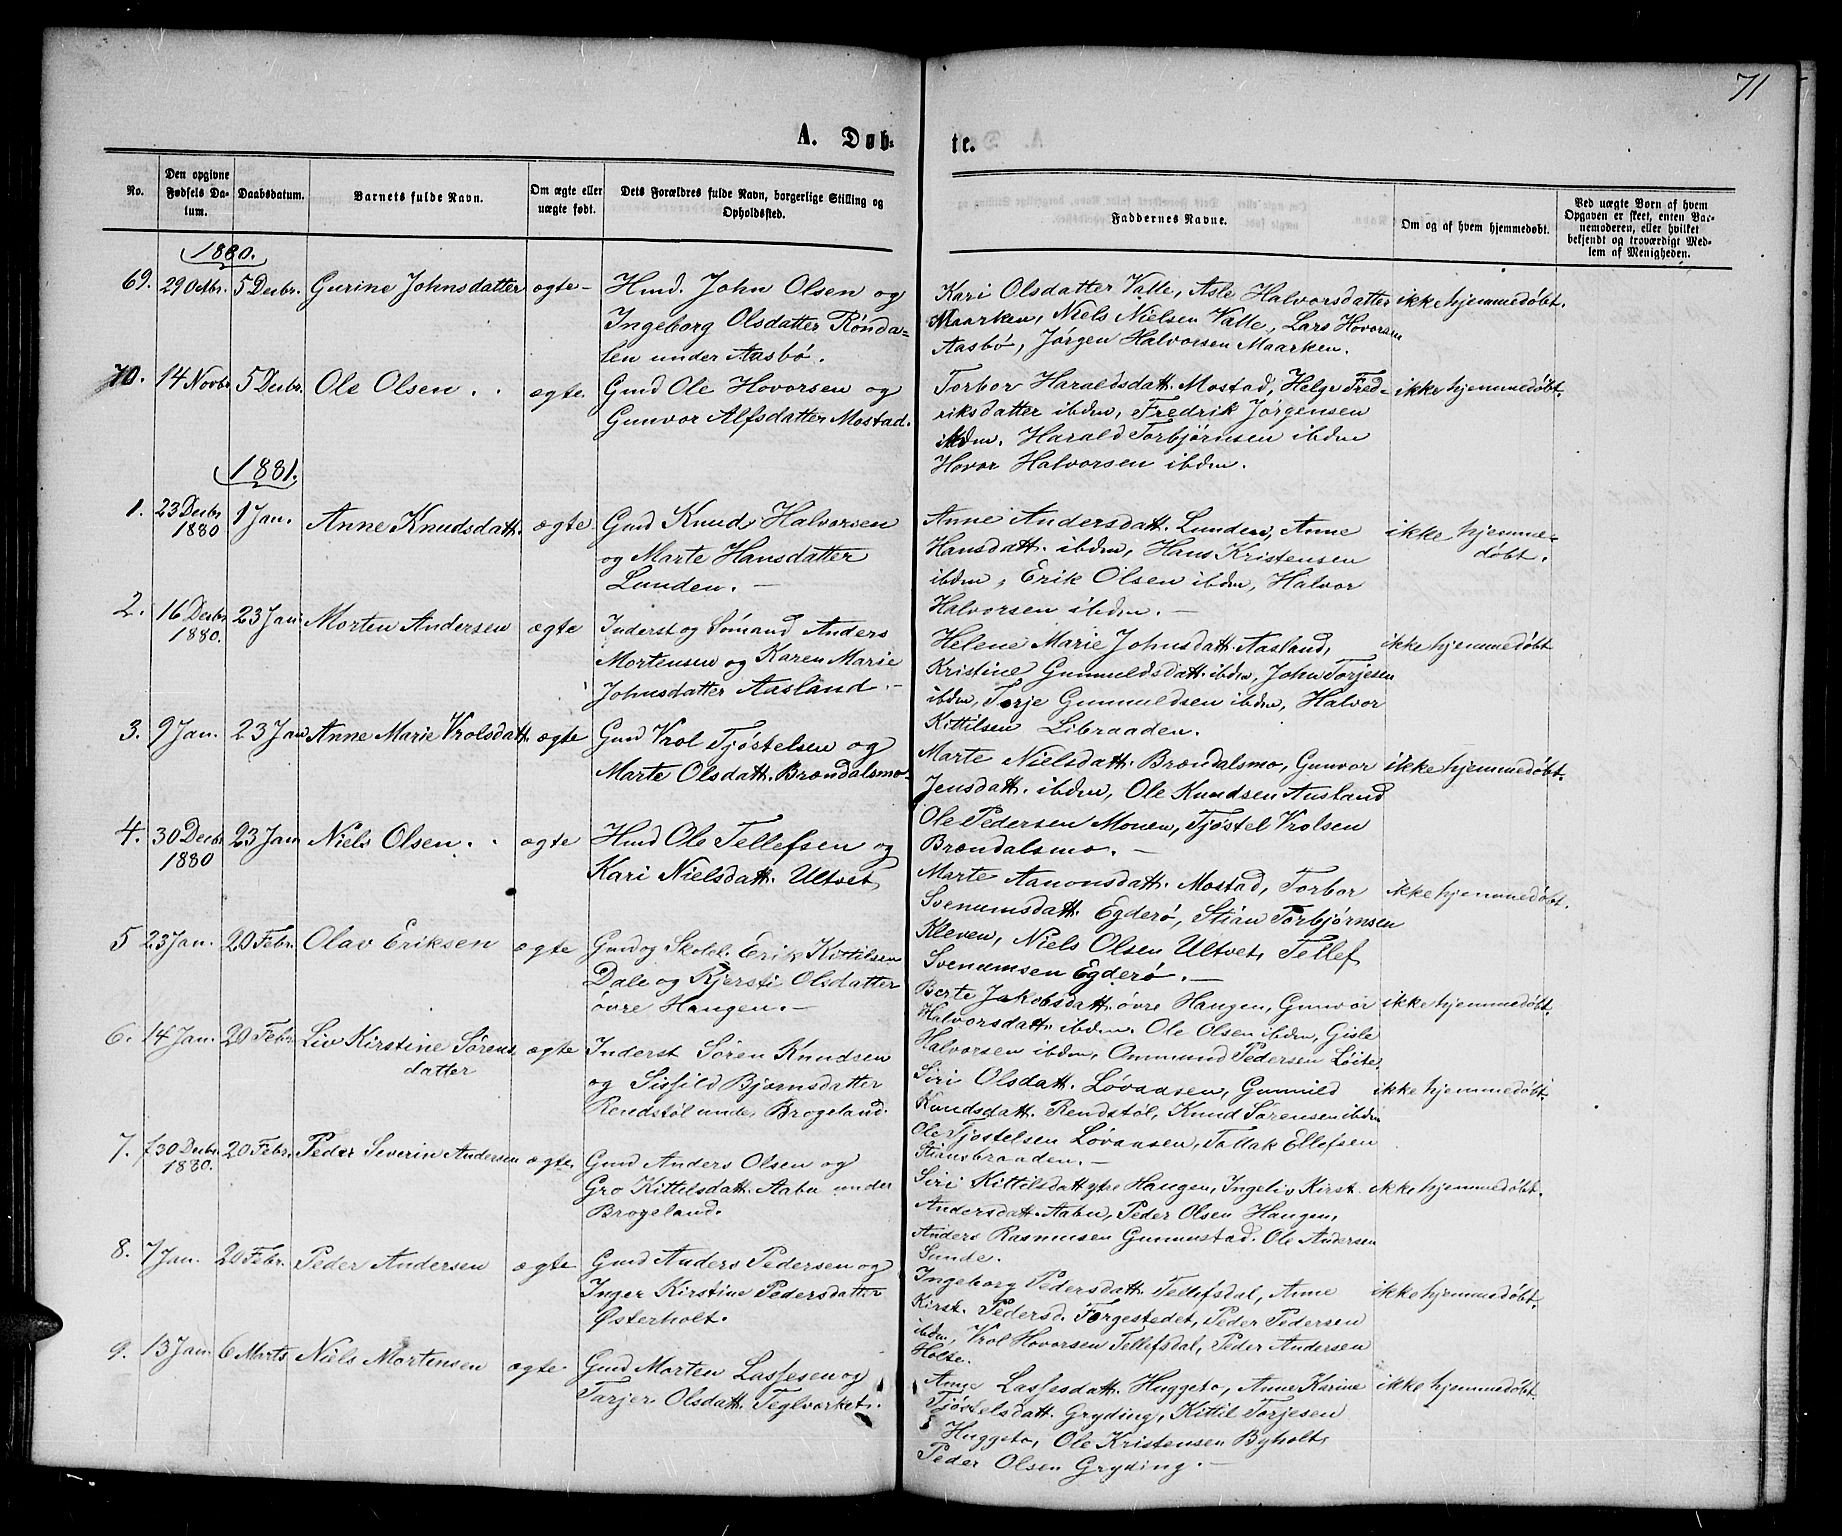 71
A. Døb-
te.
No.
Den opgivne Fødsels Datum.
Daabsdatum.
Barnets fulde Navn.
Om ægte eller uægte født.
Dets Forældres fulde Navn, borgerlige Stilling og Opholdssted.
Faddernes Navne.
Om og af hvem hjemmedøbt.
Ved uægte Børn af hvem Opgaven er skeet, enten Barnemoderen, eller hvilket bekjendt og troværdigt Medlem af Menigheden.
1880.
69. 29 Octbr. 5 Decbr. Gurine Johnsdatter ægte- Hmd. John Olsen og
Ingeborg Olsdatter Röndalen
under Aasbö.
Kari Olsdatter Valle, Asle Halvorsdatter ikke hjemmedøbt.
Maarken, Niels Nielsen Valle, Lars Hovorsen
Aasbö, Jørgen Halvorsen Maarken.
70. 14 Novbr 5 Decbr. Ole Olsen ægte. Gmd Ole Hovorsen og
Gunvor Alfsdatter Mostad.
Torbor Haraldsdatt. Mostad, Helge Fred- ikke hjemmedøbt.
riksdatter ibdm, Fredrik Jørgensen
ibdm. Harald Torbjörnsen ibdm
Hovor Halvorsen ibdm.
1881.
1. 23 Decbr 1880 1 Jan. Anne Knudsdatt. ægte Gmd Knud Halvorsen
og Marte Hansdatter
Lunden. —
Anne Andersdatt. Lunden, Anne ikke hjemme-
Hansdatt. ibdm, Hans Kristensen døbt.
ibdm, Erik Olsen ibdm, Halvor
Halvorsen ibdm. —
2. 16 Decbr 1880. 23 Jan. Morten Andersen ægte Inderst og Sömand Anders
Mortensen og Karen Marie
Johnsdatter Aasland. —
Helene Marie Johnsdatt. Aasland, ikke hjemmedøbt
Kristine Gunnuldsdatt. ibdm, John Torjesen
ibdm, Torje Gunnuldsen ibdm, Halvor
Kittilsen Libraaden.
3. 9 Jan. 23 Jan Anne Marie Vrolsdatt. ægte Gmd Vrol Tjöstelsen og
Marte Olsdatt. Brændalsmo
Marte Nielsdatt. Brændalsmo, Gunvor ikke hjemmedøbt.
Jensdatt. ibdm, Ole Knudsen Ausland
Ole Pedersen Monen, Tjöstel Vrolsen
Brændalsmo. —
4. 30 Decbr 1880 23 Jan Niels Olsen. ægte Hmd Ole Tellefsen og
Kari Nielsdatt. Ultvet
Marte Aanonsdatt. Mostad, Torbor ikke hjemmedøbt.
Svenumsdatt. Egderö, Stian Torbjörnsen
Kleven, Niels Olsen Ultvet, Tellef
Svenumsen Egderö. —
5 23 Jan. 20 Febr. Olav Eriksen ægte Gmd og Skolel. Erik Kittilsen
Dale og Kjersti Olsdatter
övre Haugen. —
Berte Jakobsdatt. övre Haugen, Gunvor ikke hjemmedøbt.
Halvorsdatt. ibdm. Ole Olsen ibdm, Gisle
Halvorsen ibdm, Ommund Pedersen Löite.
6. 14 Jan. 20 Febr. Liv Kirstine Sörens ægte Inderst Sören Knudsen
datter
og Sigfild Bjørnsdatter
Rendstöl under Brogeland.
Siri Olsdatt. Lövaasen, Gunnild ikke hjemmedøbt.
Knudsdatt. Rendstöl, Knud Sörensen ibdm
Ole Tjöstelsen Lövaasen, Tallak Ellefsen
Stiansbraaden. —
7. 30 Decbr. 1880. 20 Febr. Peder Severin Andersen ægte, Gmd Anders Olsen og
Gro Kittilsdatt. Aabu under
Brogeland.
Siri Kittilsdatt ytre Haugen, Ingeliv Kirst. ikke hjemmedøbt.
Andersdatt. Aabu, Peder Olsen Haugen,
Anders Rasmusen Gunnustad. Ole Andersen
Sunde.
8. 7 Jan. 20 Febr. Peder Andersen ægte Gmd Anders Pedersen og
Inger Kirstine Pedersdatter
Østerholt.
Ingeborg Pedersdatt. Tellefsdal, Anne ikke hjemmedøbt.
Kirst. Pedersd. Torgestedet, Peder Pedersen
ibdm, Vrol Hovorsen Tellefsdal, Peder Andersen
Holte.
9. 13 Jan. 6 Marts Niels Mortensen ægte. Gmd Morten Lassesen og
Tarjer Olsdatt. Teglværket.
Anne Lassesdatt. Huggeto, Anne Karine ikke hjemmedøbt.
Tjöstelsdatt. Gryding, Kittil Torjesen
Huggeto, Ole Kristensen Byholt,
Peder Olsen Gryding. —